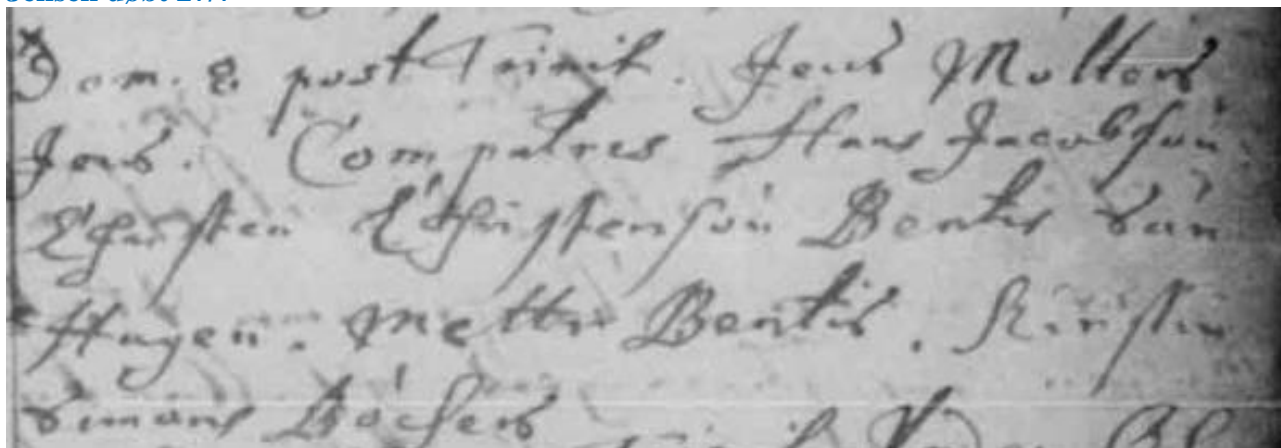 Jensen døbt 2.7.
Dom. 2 post Trinit. Jens Molters
Jens. Compatres Hans Jacobsøn.
Christen Christensøn Bentis van
Hagen. Mette Bentis. Kirstin
Simons Böchers